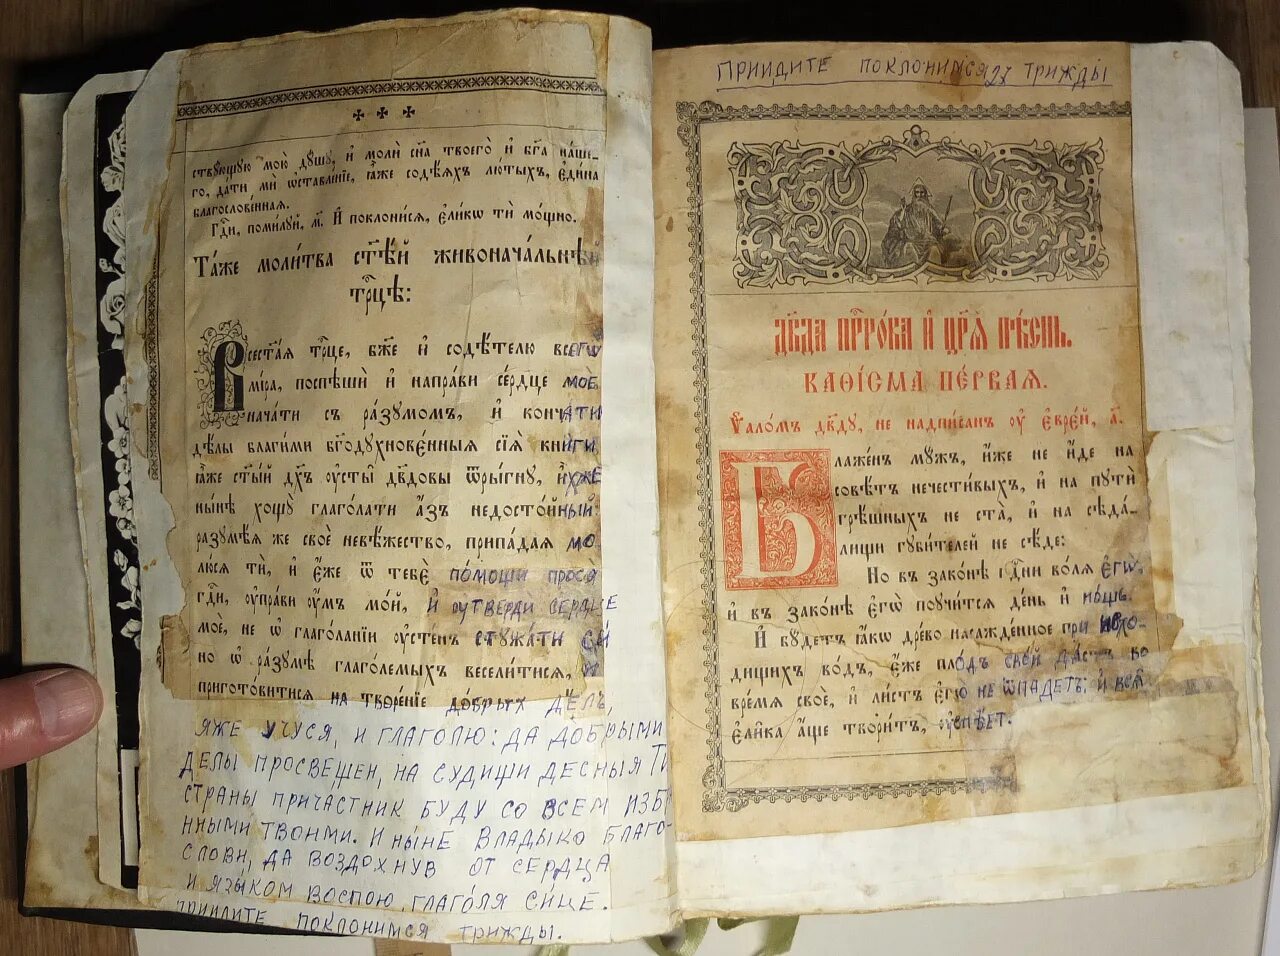 ствꙋющую мою̀ дꙋ́шꙋ, и҆ молѝ сн҃а твоего̀ и҆ бг҃а на́ше-
го, да́ти мѝ ѡ҆ставле́нїе, ꙗ҆̀же содѣ́ѧхъ лю́тыхъ, є҆ди́на
благослове́ннаѧ.
Гдⷭ҇и, поми́лꙋй, м҃. И҆ поклони́сѧ, є҆ли́кѡ тѝ мо́щно.
Та́же моли́тва ст҃ѣ́й живонача́льнѣй
трⷪ҇цѣ:
Всест҃а́ѧ трⷪ҇це, бж҃е и҆ содѣ́телю всегѡ̀
мі́ра, поспѣшѝ и҆ напра́ви се́рдце моѐ
нача́ти съ ра́зꙋмомъ, и҆ конча́ти
дѣ́лы благи́ми бг҃одꙋхнове́нныѧ сїѧ̑ кни̑ги
ꙗ҆̀же ст҃ы́й дх҃ъ ᲂу҆сты̑ дв҃довы ѿры́гнꙋ, и҆́хже
ны́нѣ хощꙋ̀ глаго́лати а҆́зъ недосто́йный:
разꙋмѣ́ѧ же своѐ невѣ́жество, припа́даѧ мо-
лю́сѧ тѝ, и҆ є҆́же ѿ тебѐ помощи просѧ̀
гдⷭ҇и, ᲂу҆пра́ви ᲂу҆́мъ мо́й, и҆ ᲂу҆тверди сердце
моѐ, не ѡ҆ глаго́ланїи ᲂу҆сте́нъ стꙋжати си
но ѡ҆ ра́зꙋмѣ глаго́лемыхъ весели́тисѧ, и
пригото́витисѧ на творе́ние до́брых дѣ́лъ,
яже учуся, и глаголю: да добрыми
делы просвещен, на судищи десныя ти
страны причастник буду со всем избр
нными твоими. И ныне владыко благо-
слови, да воздохнув от сердца
и языком воспою, глаголя сице.
приидите поклонимся трижды.
приидите поклонимся 27 трижды
Дв҃да прⷪ҇ро́ка и҆ цр҃ѧ̀ пѣ́снь.
Каѳі́сма пе́рваѧ.
Ѱало́мъ дв҃дꙋ, не надпи́санъ ᲂу҆ є҆вре́й, а҃.
Блаже́нъ мꙋ́жъ, и҆́же не и҆́де на
совѣ́тъ нечести́выхъ, и҆ на пꙋтѝ
грѣ́шныхъ не ста̀, и҆ на сѣда́-
лищи гꙋби́телей не сѣ́де:
Но въ зако́нѣ гдⷭ҇ни во́лѧ є҆гѡ̀,
и҆ въ зако́нѣ є҆гѡ̀ поꙋчи́тсѧ де́нь и҆ но́щь.
И҆ бꙋ́детъ ꙗ҆́кѡ дре́во насажде́нное при исхо-
дищихъ во́дъ, є҆́же пло́дъ свой да́стъ во
вре́мѧ своѐ, и҆ ли́стъ є҆гѡ̀ не ѿпадетъ: и всѧ̑
є҆ли̑ка а҆́ще твори́тъ, ᲂу҆спѣет.